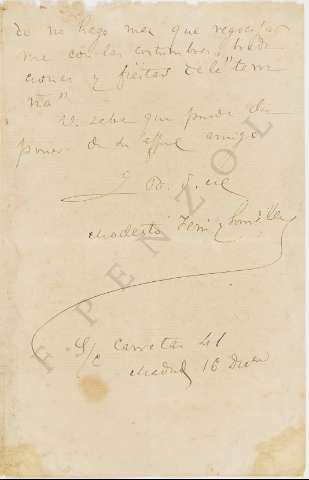 do no hago mas que regocijar
me con las costumbres, tradi
ciones y fiestas de la "terri
ña"
V. sabe que puede dis
poner de su amigo
Modesto Fern y González
S/c Carretas 41
Madrid 16
F PENZOL